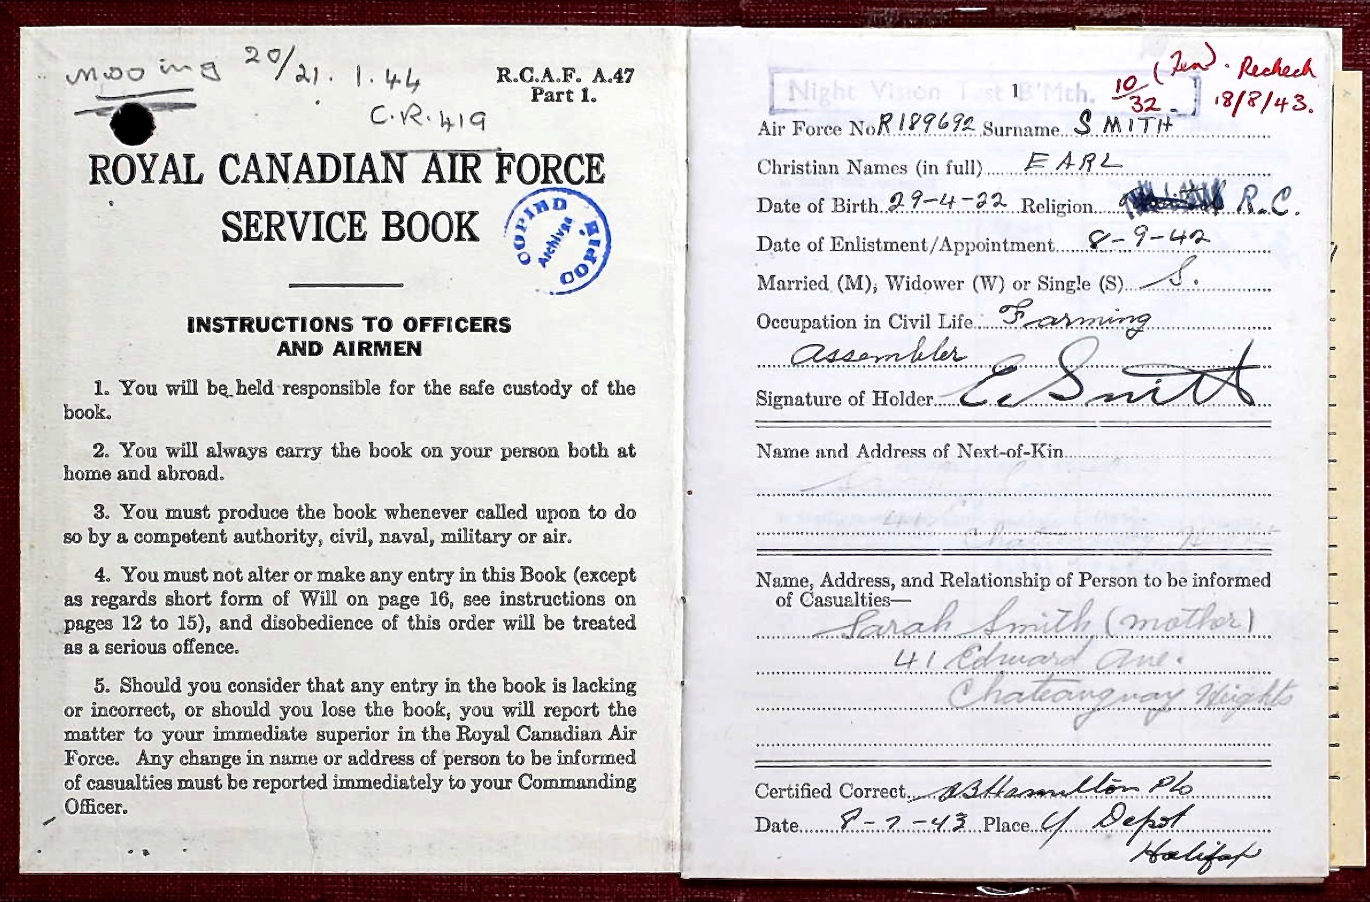 missing 20/21.1.44
C.R.419
R.C.A.F. A.47
Part 1.
ROYAL CANADIAN AIR FORCE
SERVICE BOOK
COPIED Archives COPIÉ
INSTRUCTIONS TO OFFICERS
AND AIRMEN
1. You will be held responsible for the safe custody of the
book.
2. You will always carry the book on your person both at
home and abroad.
3. You must produce the book whenever called upon to do
so by a competent authority, civil, naval, military or air.
4. You must not alter or make any entry in this Book (except
as regards short form of Will on page 16, see instructions on
pages 12 to 15), and disobedience of this order will be treated
as a serious offence.
5. Should you consider that any entry in the book is lacking
or incorrect, or should you lose the book, you will report the
matter to your immediate superior in the Royal Canadian Air
Force. Any change in name or address of person to be informed
of casualties must be reported immediately to your Commanding
Officer.
Night Vision Test B'Mth. 10/32 Recheck
18/8/43.
1
Air Force No R189692 Surname SMITH
Christian Names (in full) EARL
Date of Birth 29-4-22 Religion R.C.
Date of Enlistment/Appointment 8-9-42
Married (M), Widower (W) or Single (S) S.
Occupation in Civil Life Farming
assembler
Signature of Holder E. Smith
Name and Address of Next-of-Kin
41
Chateauguay
Name, Address, and Relationship of Person to be informed
of Casualties—
Sarah Smith (mother)
41 Edward Ave.
Chateauguay Heights
Certified Correct Hamilton P/O
Date 8-7-43 Place Y Depot
Halifax